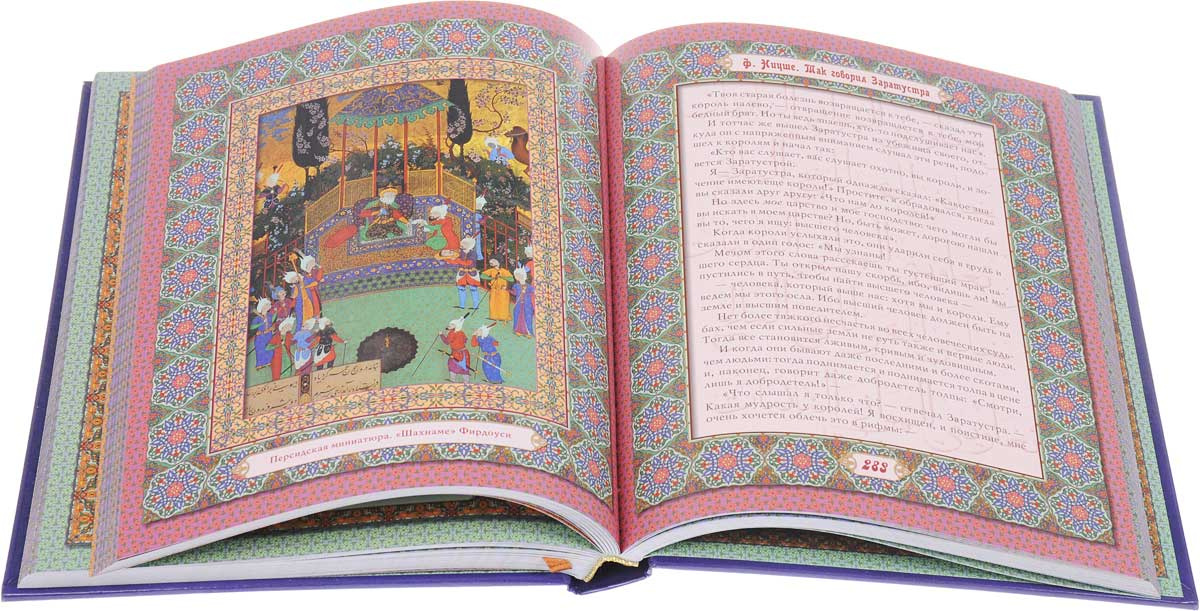 Персидская миниатюра. «Шахнаме» Фирдоуси
Ф. Ницше. Так говорил Заратустра
«Твоя старая болезнь возвращается к тебе, — сказал тут
король налево, — отвращение возвращается к тебе, мой
бедный брат. Но ты ведь знаешь, кто-то подслушивает нас».
И тотчас же вышел Заратустра из убежища своего, от-
куда он с напряженным вниманием слушал эти речи, подо-
шел к королям и начал так:
«Кто вас слушает, вас слушает охотно, вы, короли, и зо-
вется Заратустрой.
Я — Заратустра, который однажды сказал: «Какое зна-
чение имеют еще короли!» Простите, я обрадовался, когда
вы сказали друг другу: «Что нам до королей!»
Но здесь мое царство и мое господство: чего могли бы
вы искать в моем царстве? Но, быть может, дорогою нашли
вы то, чего я ищу: высшего человека».
Когда короли услыхали это, они ударили себя в грудь и
сказали в один голос: «Мы узнаны!
Мечом этого слова рассекаешь ты густейший мрак на-
шего сердца. Ты открыл нашу скорбь, ибо, видишь ли! мы
пустились в путь, чтобы найти высшего человека —
— человека, который выше нас: хотя мы и короли. Ему
ведем мы этого осла. Ибо высший человек должен быть на
земле и высшим повелителем.
Нет более тяжкого несчастья во всех человеческих судь-
бах, чем если сильные земли не суть также и первые люди.
Тогда все становится лживым, кривым и чудовищным.
И когда они бывают даже последними и более скотами,
чем людьми: тогда поднимается и поднимается толпа в цене
и, наконец, говорит даже добродетель толпы: «Смотри,
лишь я добродетель!»
«Что слышал я только что? — отвечал Заратустра. —
Какая мудрость у королей! Я восхищен, и поистине, мне
очень хочется облечь это в рифмы: —
283